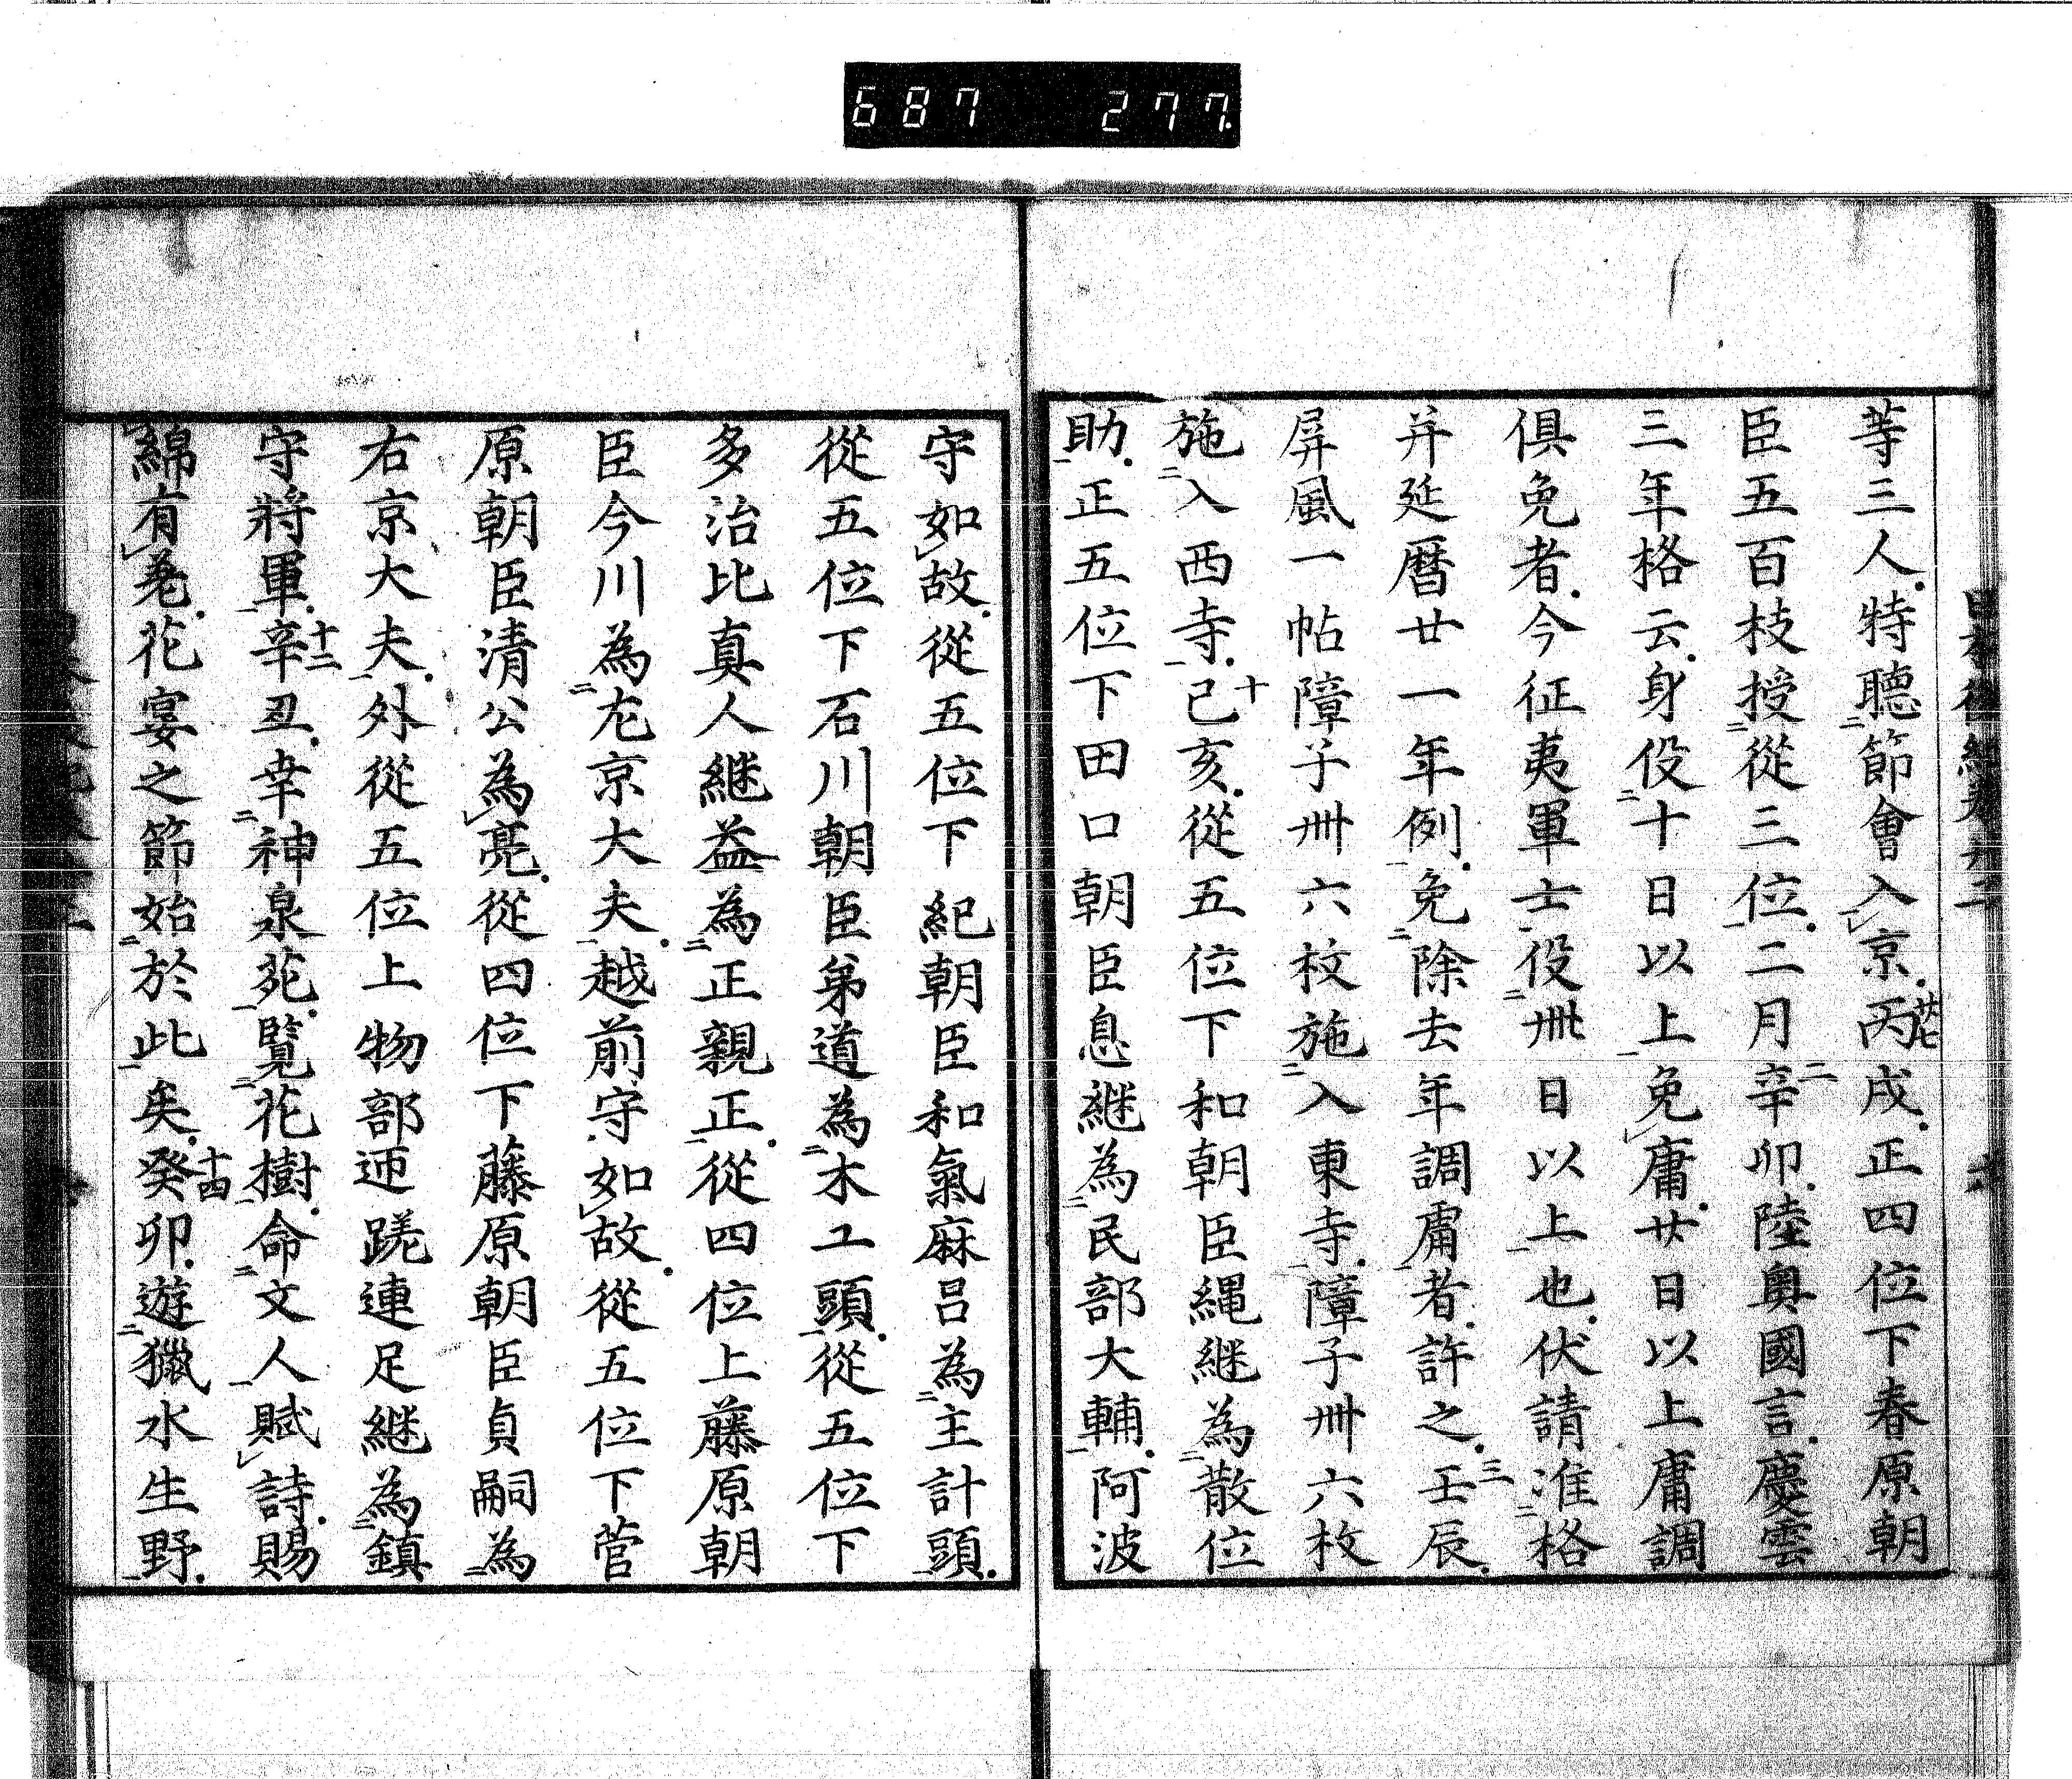 687 277
等三人特聴節會入京丙戌正四位下春原朝
廿七
臣五百枝授從三位二月辛卯陸奥國言慶雲
二
三年格云身役十日以上免庸廿日以上庸調
倶免者今征夷軍士役卌日以上也伏請准格
并延暦廿一年例免除去年調庸者許之壬辰
三
屏風一帖障子卌六枚施入東寺障子卌六枚
施入西寺己亥從五位下和朝臣縄継為散位
十
助正五位下田口朝臣息継為民部大輔阿波
守如故從五位下紀朝臣和氣麻呂為主計頭
從五位下石川朝臣弟道為木工頭從五位下
多治比真人継益為正親正從四位上藤原朝
臣今川為左京大夫越前守如故從五位下菅
原朝臣清公為亮從四位下藤原朝臣貞嗣為
右京大夫外從五位上物部迊瑳連足継為鎮
守將軍辛丑幸神泉苑覧花樹命文人賦詩賜
十二
綿有差花宴之節始於此矣癸卯遊獵水生野
十四